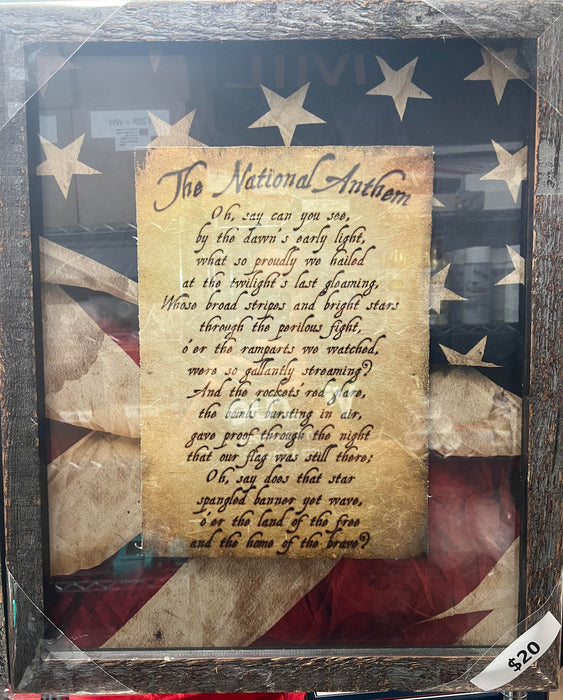 The National Anthem
Oh, say can you see,
by the dawn's early light,
what so proudly we hailed
at the twilight's last gleaming,
Whose broad stripes and bright stars
through the perilous fight,
o'er the ramparts we watched,
were so gallantly streaming?
And the rockets' red glare,
the bombs bursting in air,
gave proof through the night
that our flag was still there;
Oh, say does that star
spangled banner yet wave,
o'er the land of the free
and the home of the brave?
$20